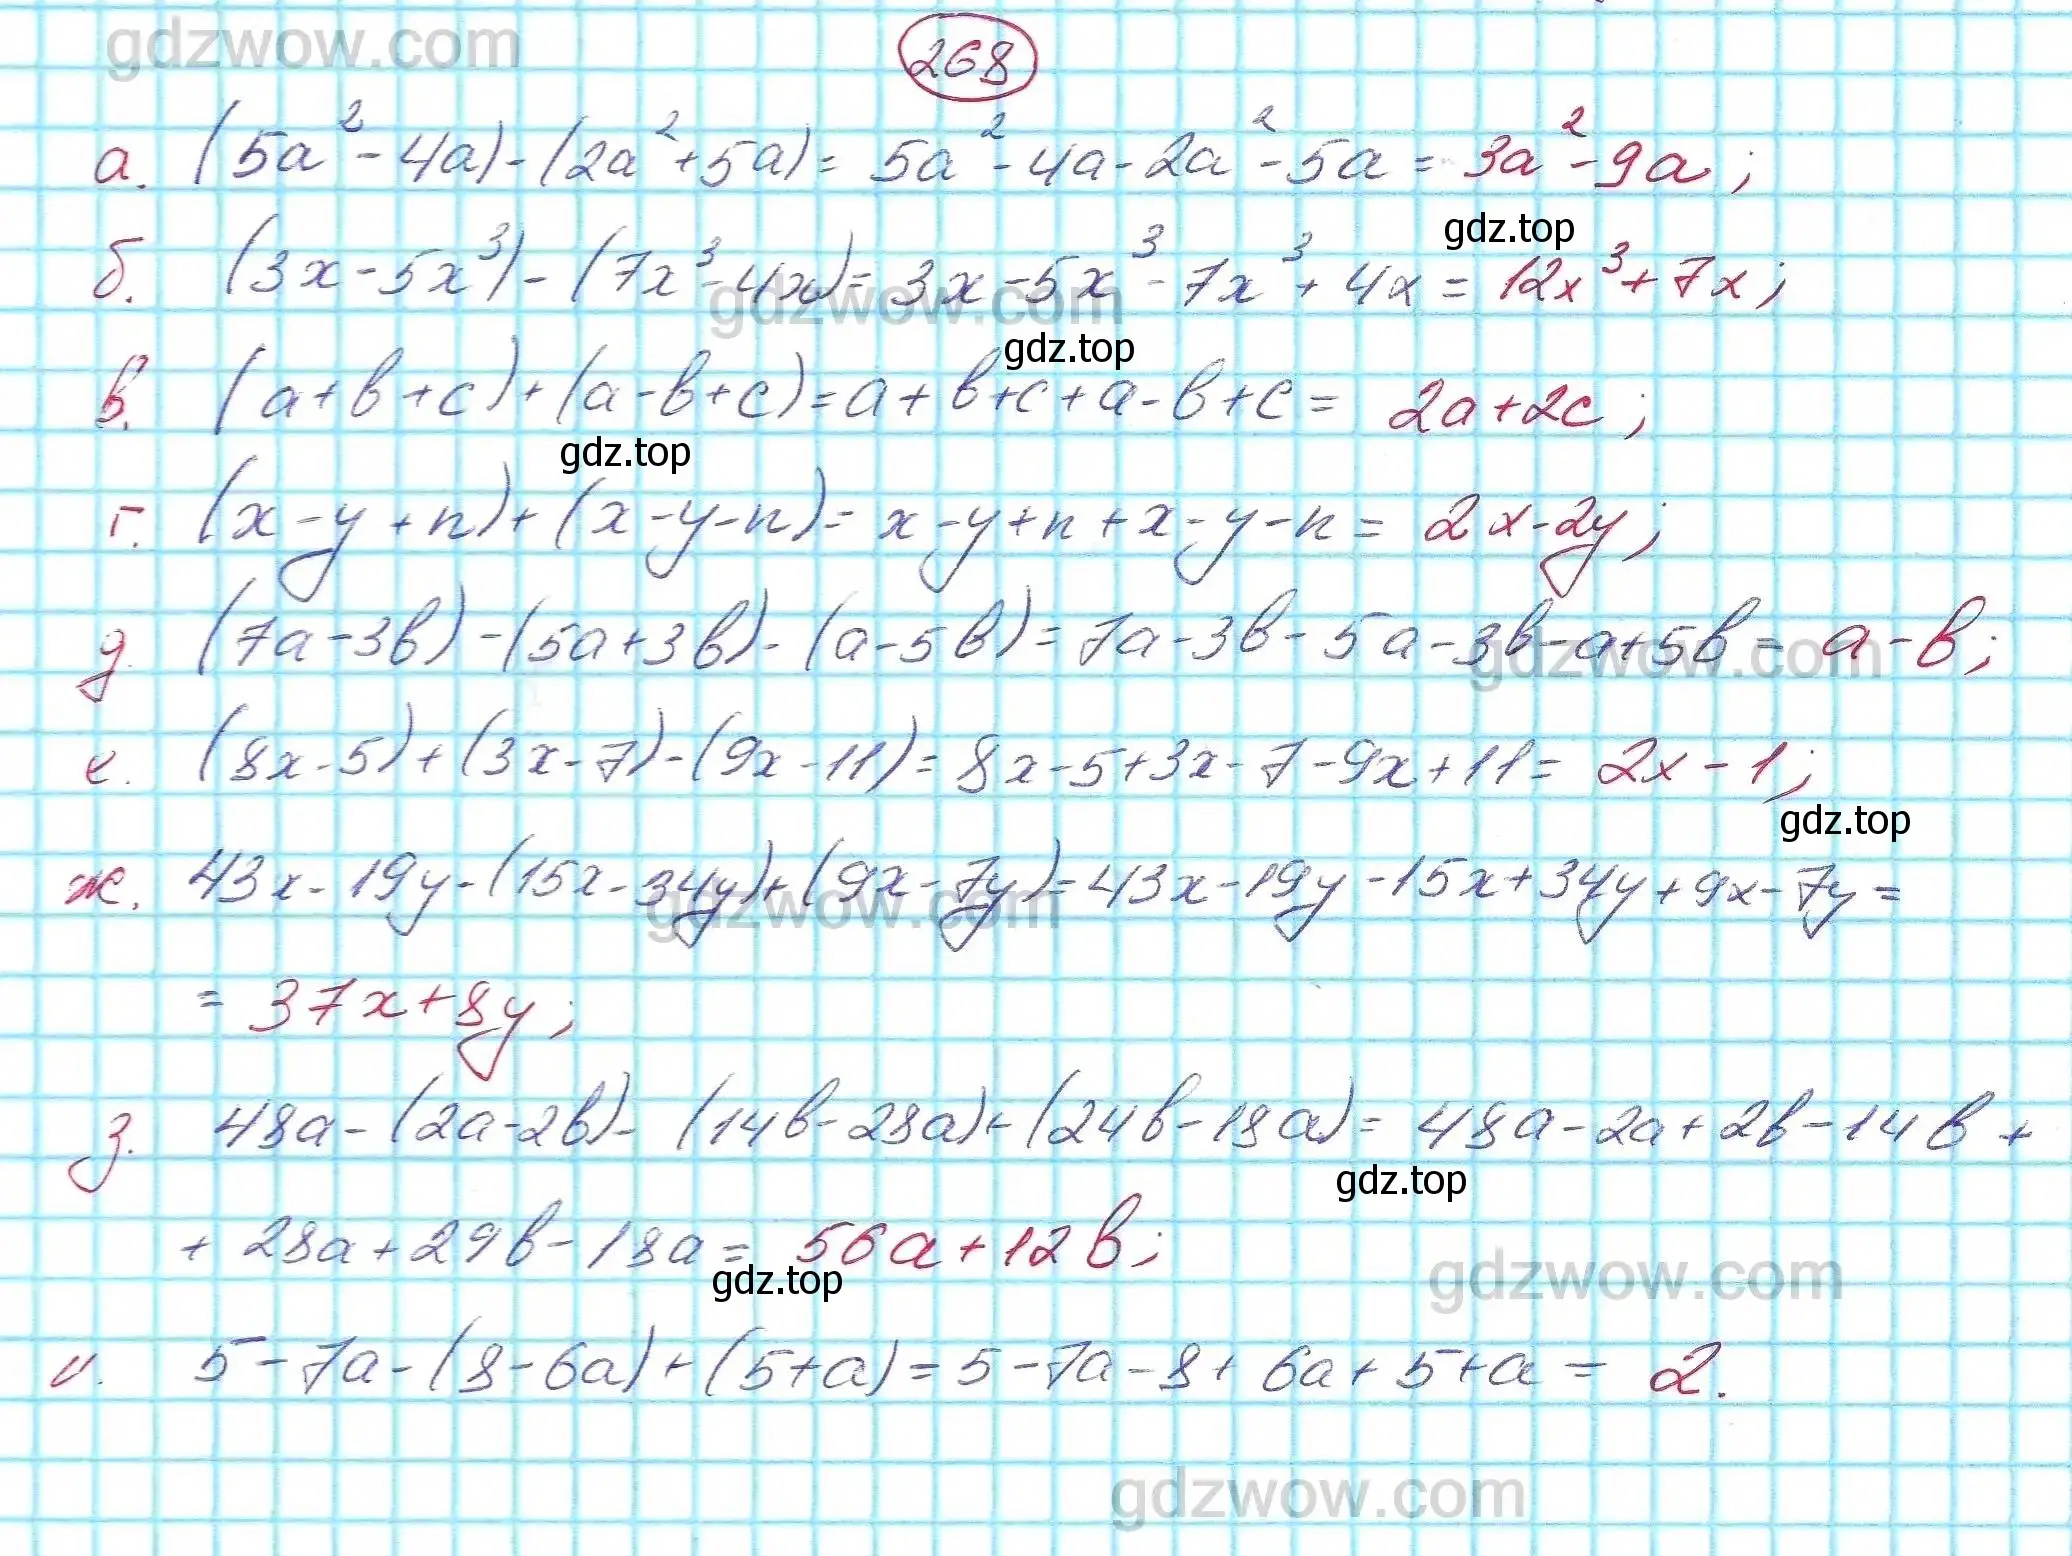 gdzwow.com
268
а. (5a² - 4a) - (2a² + 5a) = 5a² - 4a - 2a² - 5a = 3a² - 9a;
gdz.top
б. (3x - 5x³) - (7x³ - 4x) = 3x - 5x³ - 7x³ + 4x = 12x³ + 7x;
gdzwow.com
gdz.top
в. (a + b + c) + (a - b + c) = a + b + c + a - b + c = 2a + 2c;
gdz.top
г. (x - y + n) + (x - y - n) = x - y + n + x - y - n = 2x - 2y;
д. (7a - 3b) - (5a + 3b) - (a - 5b) = 7a - 3b - 5a - 3b - a + 5b = a - b;
gdzwow.com
е. (8x - 5) + (3x - 7) - (9x - 11) = 8x - 5 + 3x - 7 - 9x + 11 = 2x - 1;
gdz.top
ж. 43x - 19y - (15x - 34y) + (9x - 7y) = 43x - 19y - 15x + 34y + 9x - 7y =
gdzwow.com
= 37x + 8y;
з. 48a - (2a - 2b) - (14b - 28a) + (24b - 18a) = 48a - 2a + 2b - 14b +
gdz.top
+ 28a + 29b - 18a = 56a + 12b;
gdz.top
gdzwow.com
и. 5 - 7a - (8 - 6a) + (5 + a) = 5 - 7a - 8 + 6a + 5 + a = 2.
gdzwow.com